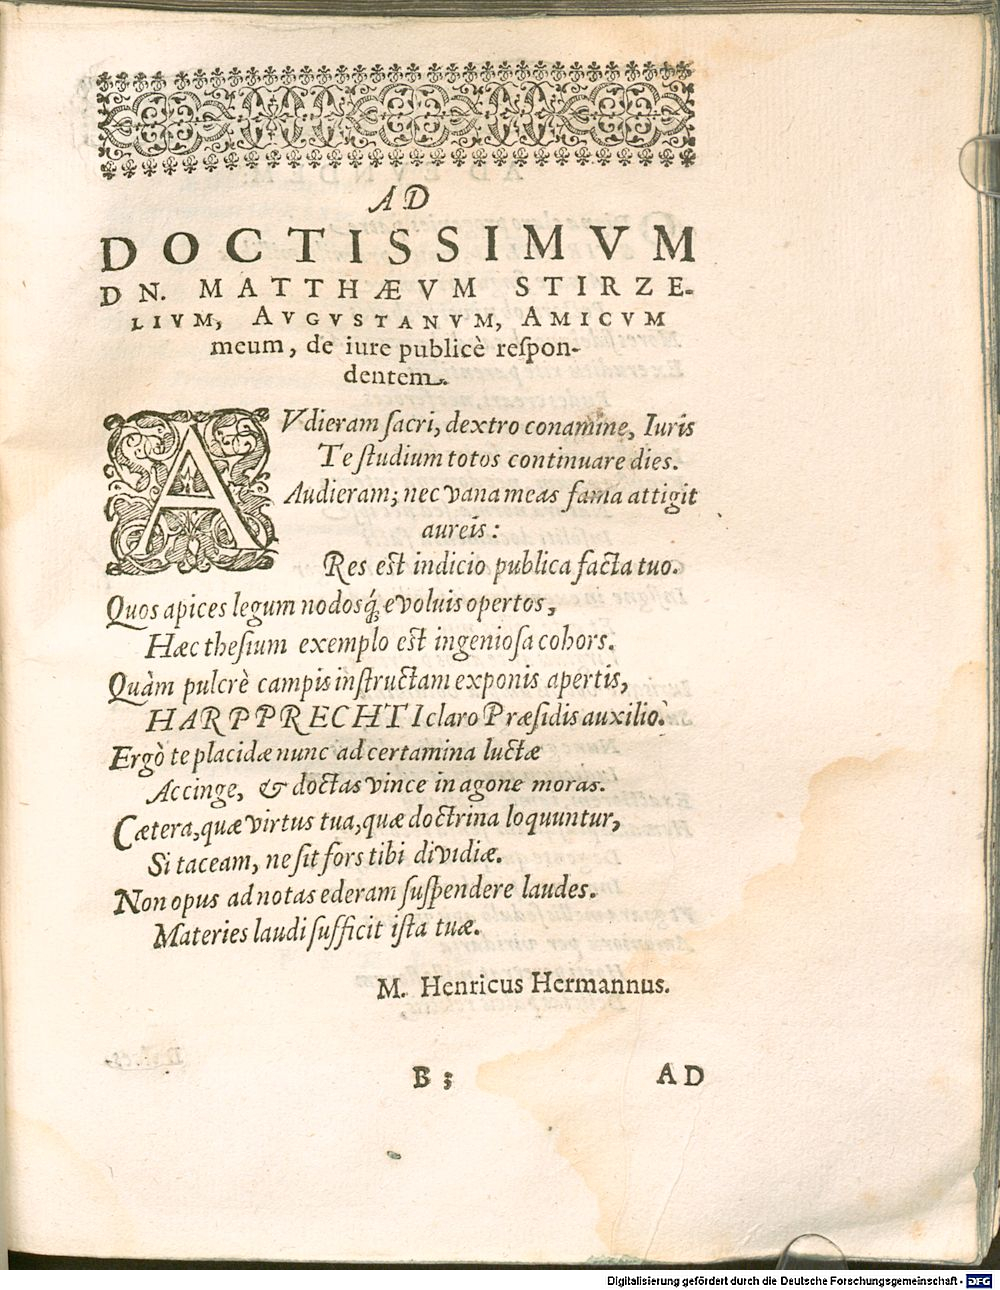 AD
DOCTISSIMVM
DN. MATTHÆVM STIRZE-
LIVM, AVGVSTANVM, AMICVM
meum, de iure publicè respon-
dentem.
AVdieram sacri, dextro conamine, Iuris
Te studium totos continuare dies.
Audieram; nec vana meas fama attigit
aureis:
Res est indicio publica facta tuo.
Quos apices legum nodosq́; evoluis opertos,
Hæc thesium exemplo est ingeniosa cohors.
Quàm pulcrè campis instructam exponis apertis,
HARPPRECHTI claro Præsidis auxilio!
Ergò te placidæ nunc ad certamina luctæ
Accinge, & doctas vince in agone moras.
Cætera, quæ virtus tua, quæ doctrina loquuntur,
Si taceam, ne sit fors tibi dividiæ.
Non opus ad notas ederam suspendere laudes.
Materies laudi sufficit ista tuæ.
M. Henricus Hermannus.
B 3
AD
Digitalisierung gefördert durch die Deutsche Forschungsgemeinschaft - DFG